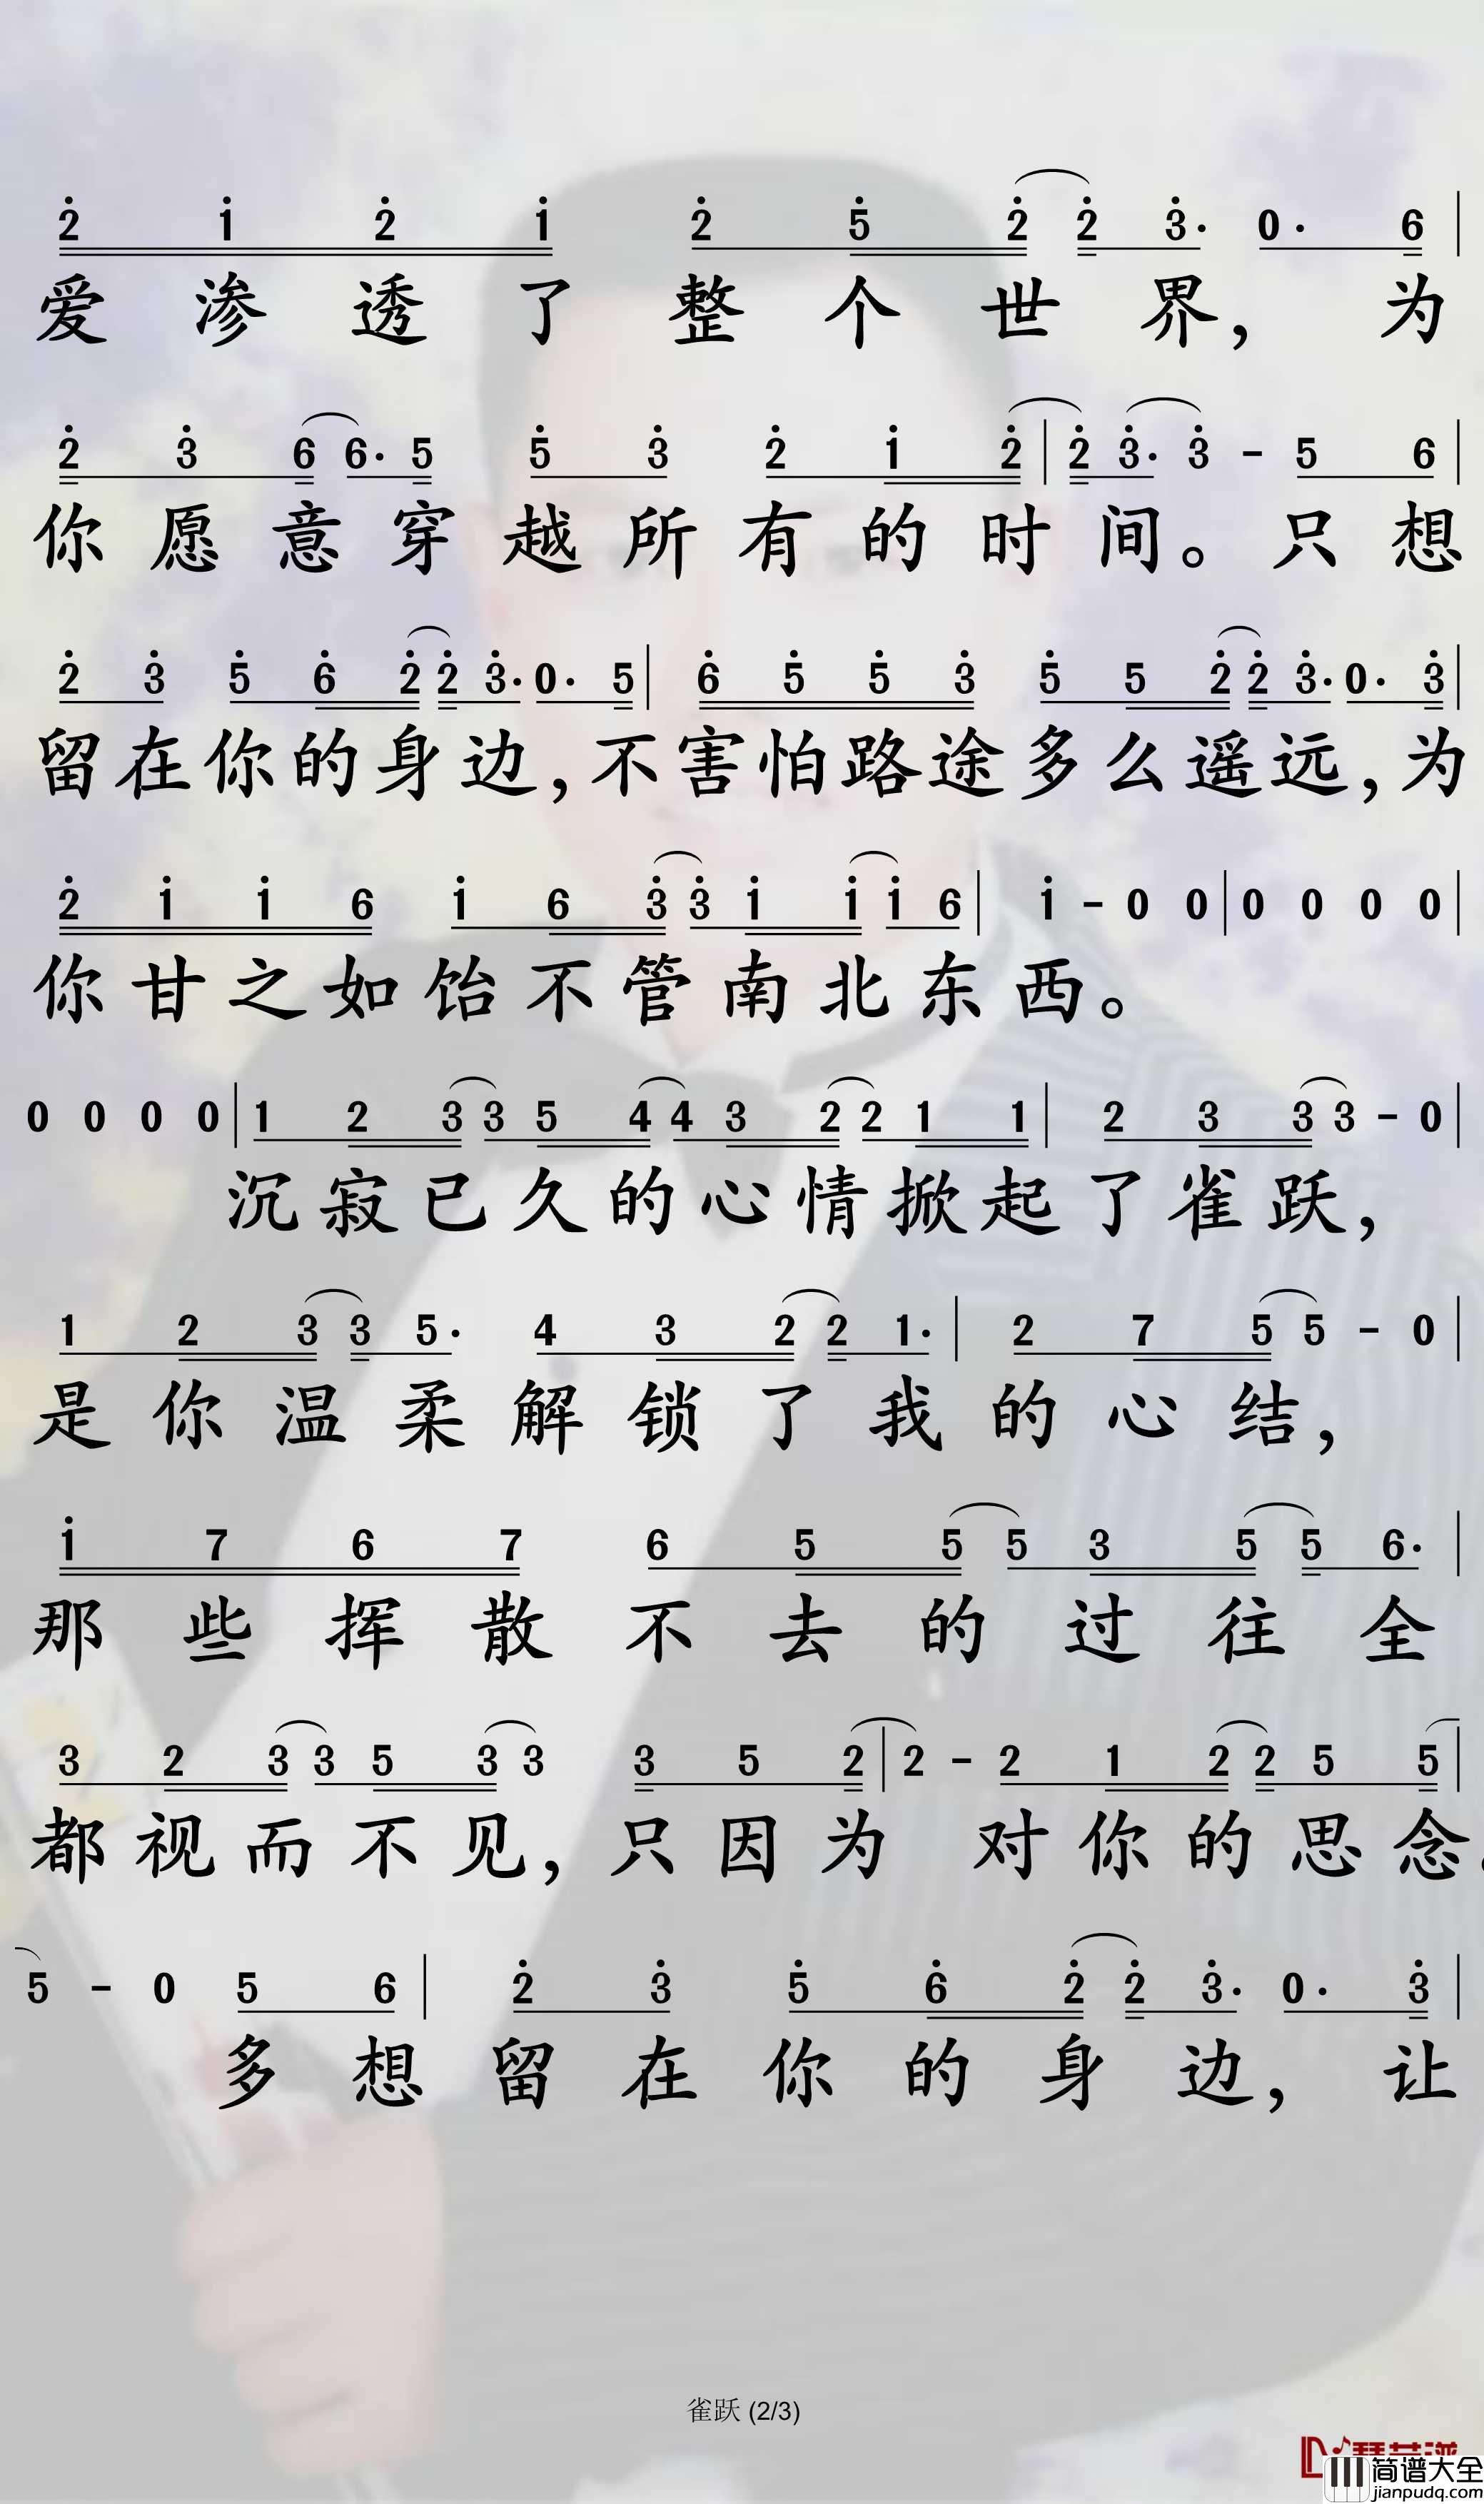 2̇ 1̇ 2̇ 1̇ 2̇ 5̇ 2̇ 2̇ 3̇· 0· 6 |
爱渗透了整个世界，为
2̇ 3̇ 6 6· 5 5 3 2̇ 1̇ 2̇ | 2̇ 3̇· 3̇ - 5 6 |
你愿意穿越所有的时间。只想
2̇ 3̇ 5̇ 6̇ 2̇ 2̇ 3̇· 0· 5̇ | 6̇ 5̇ 5̇ 3̇ 5̇ 5̇ 2̇ 2̇ 3̇· 0· 3̇ |
留在你的身边，不害怕路途多么遥远，为
2̇ 1̇ 1̇ 6 1̇ 6 3̇ 3̇ 1̇ 1̇ 1̇ 6 | 1̇ - 0 0 | 0 0 0 0 |
你甘之如饴不管南北东西。
0 0 0 0 | 1 2 3 3 5 4 4 3 2 2 1 1 | 2 3 3 3 - 0 |
沉寂已久的心情掀起了雀跃，
1 2 3 3 5· 4 3 2 2 1· | 2 7 5 5 - 0 |
是你温柔解锁了我的心结，
1̇ 7 6 7 6 5 5 5 3 5 5 6· |
那些挥散不去的过往全
3 2 3 3 5 3 3 3 5 2 | 2 - 2 1 2 2 5 5 |
都视而不见，只因为 对你的思念。
5 - 0 5 6 | 2̇ 3̇ 5̇ 6̇ 2̇ 2̇ 3̇· 0· 3̇ |
多想留在你的身边，让
雀跃 (2/3)
简谱大全
jianpudq.com